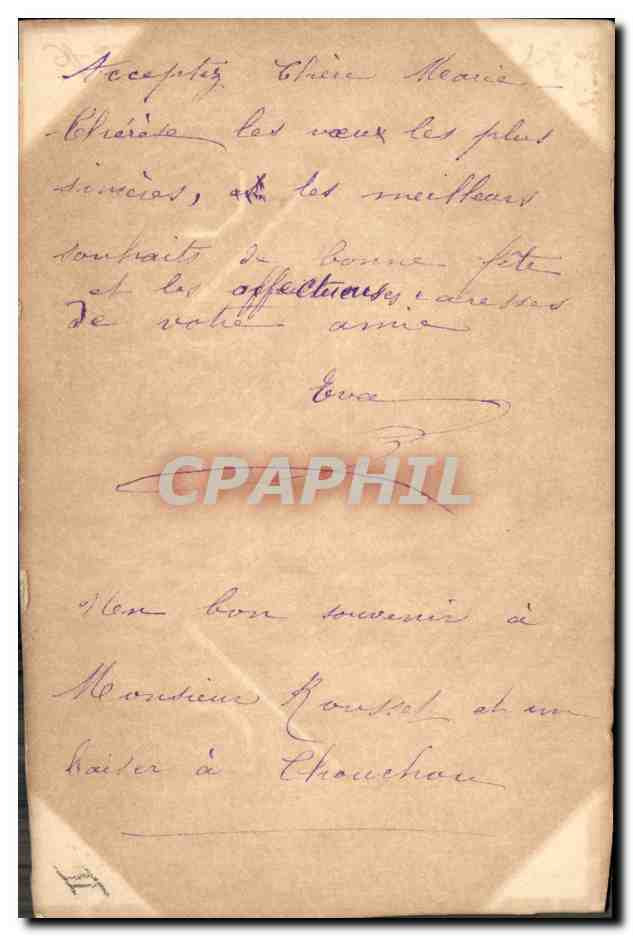 Acceptez Chère Marie
Thérèse les vœux les plus
sincères, et les meilleurs
souhaits de bonne fête
et les affectueuses caresses
de votre amie
Eva
CPAPHIL
Un bon souvenir à
Monsieur Rousset et un
baiser à Chouchou